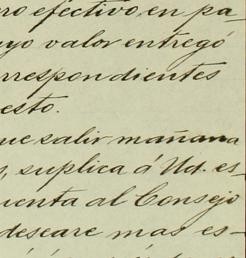 ro efectivo, en pa-
uyo valor entregó
rrespondientes
esto.
ue salir mañana
s, suplica á Ud. es-
uenta al Consejo
deseare mas es-